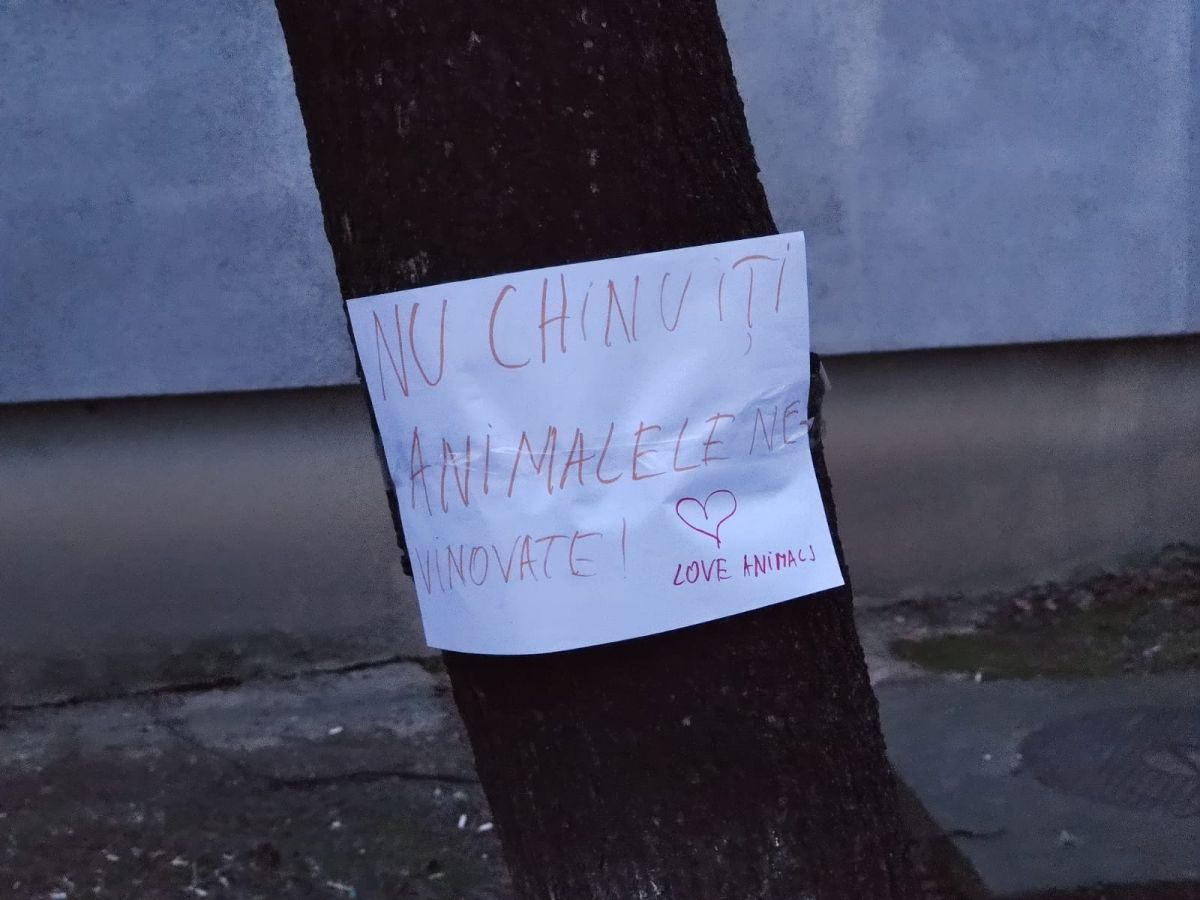 NU CHINUIȚI
ANIMALELE NE-
VINOVATE!
LOVE ANIMALS